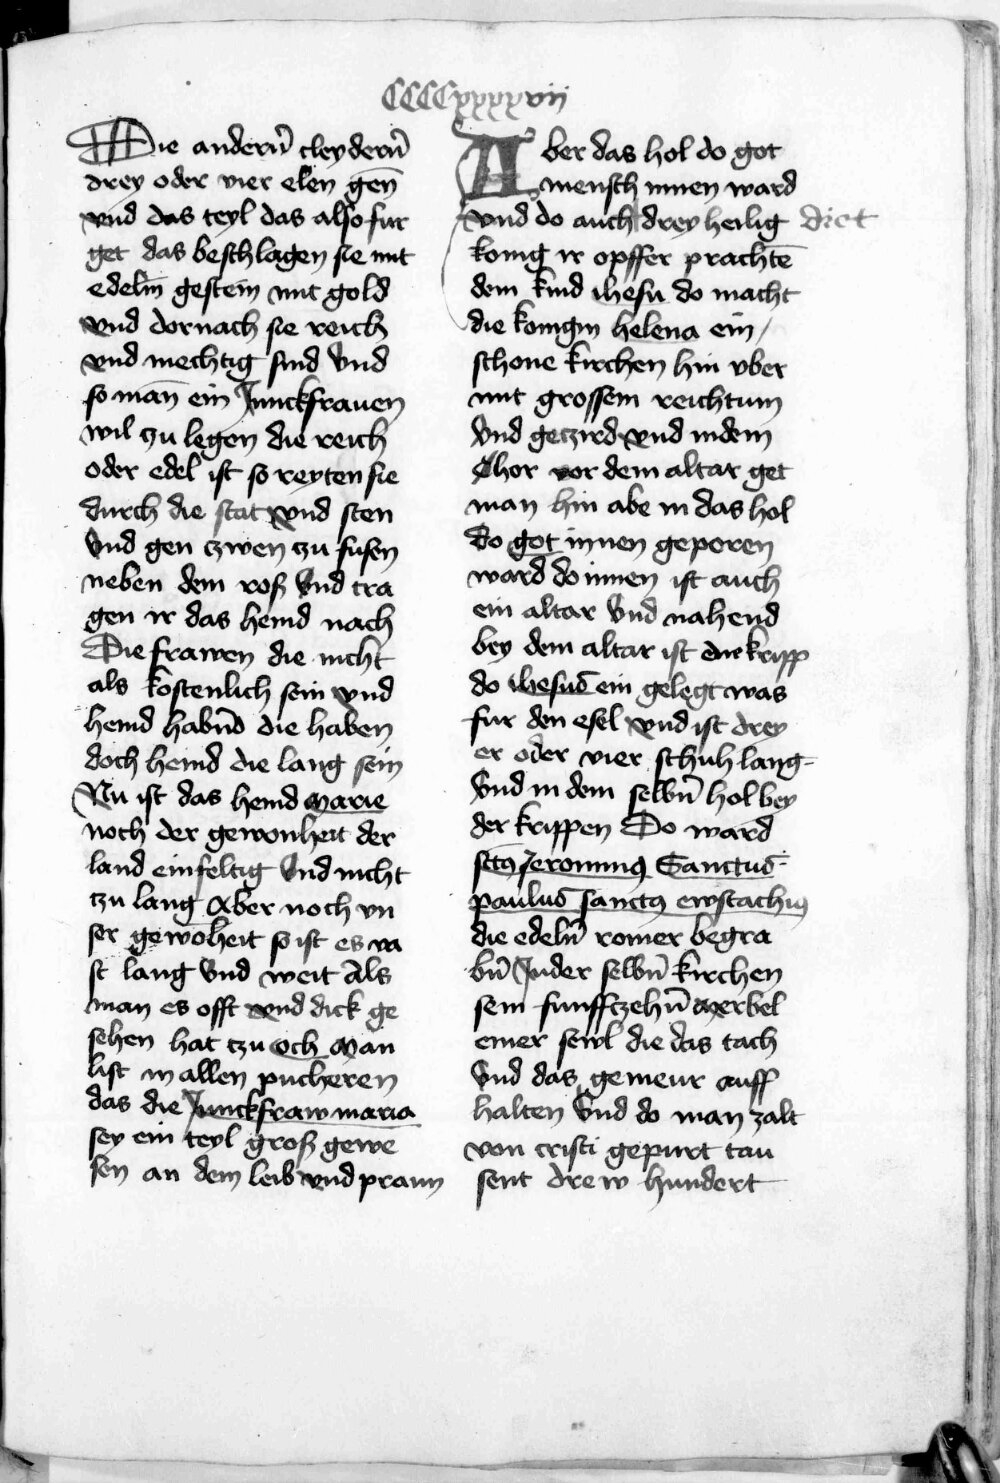 CCCCxxxxvii
Die andern̄ cleydern̄
drey oder vier elen gen̄
vnd das teyl das also fur
get das beschlagen sie mit
edelm̄ gestein mit gold
vnd dornach sie reich
vnd mechtig sind vnd
so man̄ ein Junckfrauen
wil zu legen die reich
oder edel ist so reyten sie
durch die stat vnd sten
vnd gen zwen zu fusen
neben dem roß vnd tra
gen ir das hemd nach
Die frawen die nicht
als kostenlich sein vnd
hemd habn̄d die haben
doch hemd die lang sein
Nu ist das hemd marie
noch der gewonheit der
land einfeltig vnd nicht
tzu lang Aber noch vn
ser gewōheit so ist es va
st lang vnd weit Als
man es offt vnd dick ge
sehen hat tzu och Man
list in allen pucheren
das die Junckfraw maria
sey ein teyl groß gewe
sen an dem leib vnd praun
Aber das hol do got
mensch innen ward
vnd do auch drey heilig
konig ir opffer prachtē
dem kind ihesu do macht
die konigin helena ein
schone kirchen hin vber
mit grossem reichtum
vnd getzird vnd indem
Chor vor dem altar get
man hin abe in das hol
do got innen geporen
ward do innen ist auch
ein altar vnd nahend
bey dem altar ist die kripp
do ihesus ein gelegt was
fur den esel vnd ist drey
er oder vier schuh lang
vnd in dem selbn̄ hol bey
der krippen Do ward
sctꝰ Jeronimꝰ Sanctus
paulus sanctꝰ ewstachiꝰ
die edeln̄ romer begra
bn̄ Jnder selbn̄ kirchen
sein funfftzehn̄ Merbel
einer sewl die das tach
vnd das gemeur auff
halten vnd do man zalt
von cristi gepurt tau
sent drew hundert